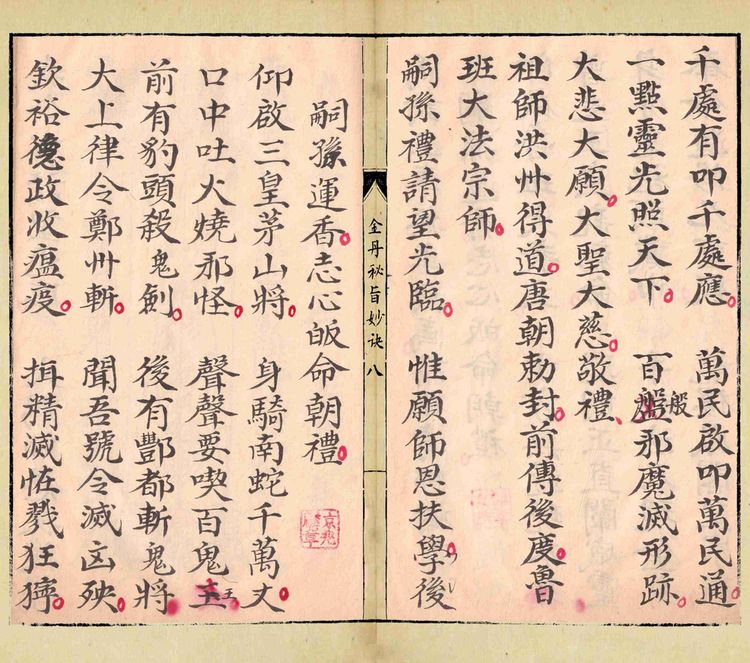 千處有叩千處應　萬民啟叩萬民通
一點靈光照天下　百盤般邪魔滅形跡
大悲大願大聖大慈敬禮
祖師洪州得道唐朝勅封前傳後度魯
班大法宗師
嗣孫禮請望光臨　惟願師恩扶學後
金丹秘旨妙訣 八
嗣孫運香志心皈命朝禮
仰啟三皇茅山將　身騎南蛇千萬丈
口中吐火燒邪怪　聲聲要喫百鬼王
前有豹頭殺鬼劍　後有酆都斬鬼將
大上律令鄭州斬　聞吾號令滅凶殃
欽裕德政收瘟疫　揖精滅怪戮狂獰